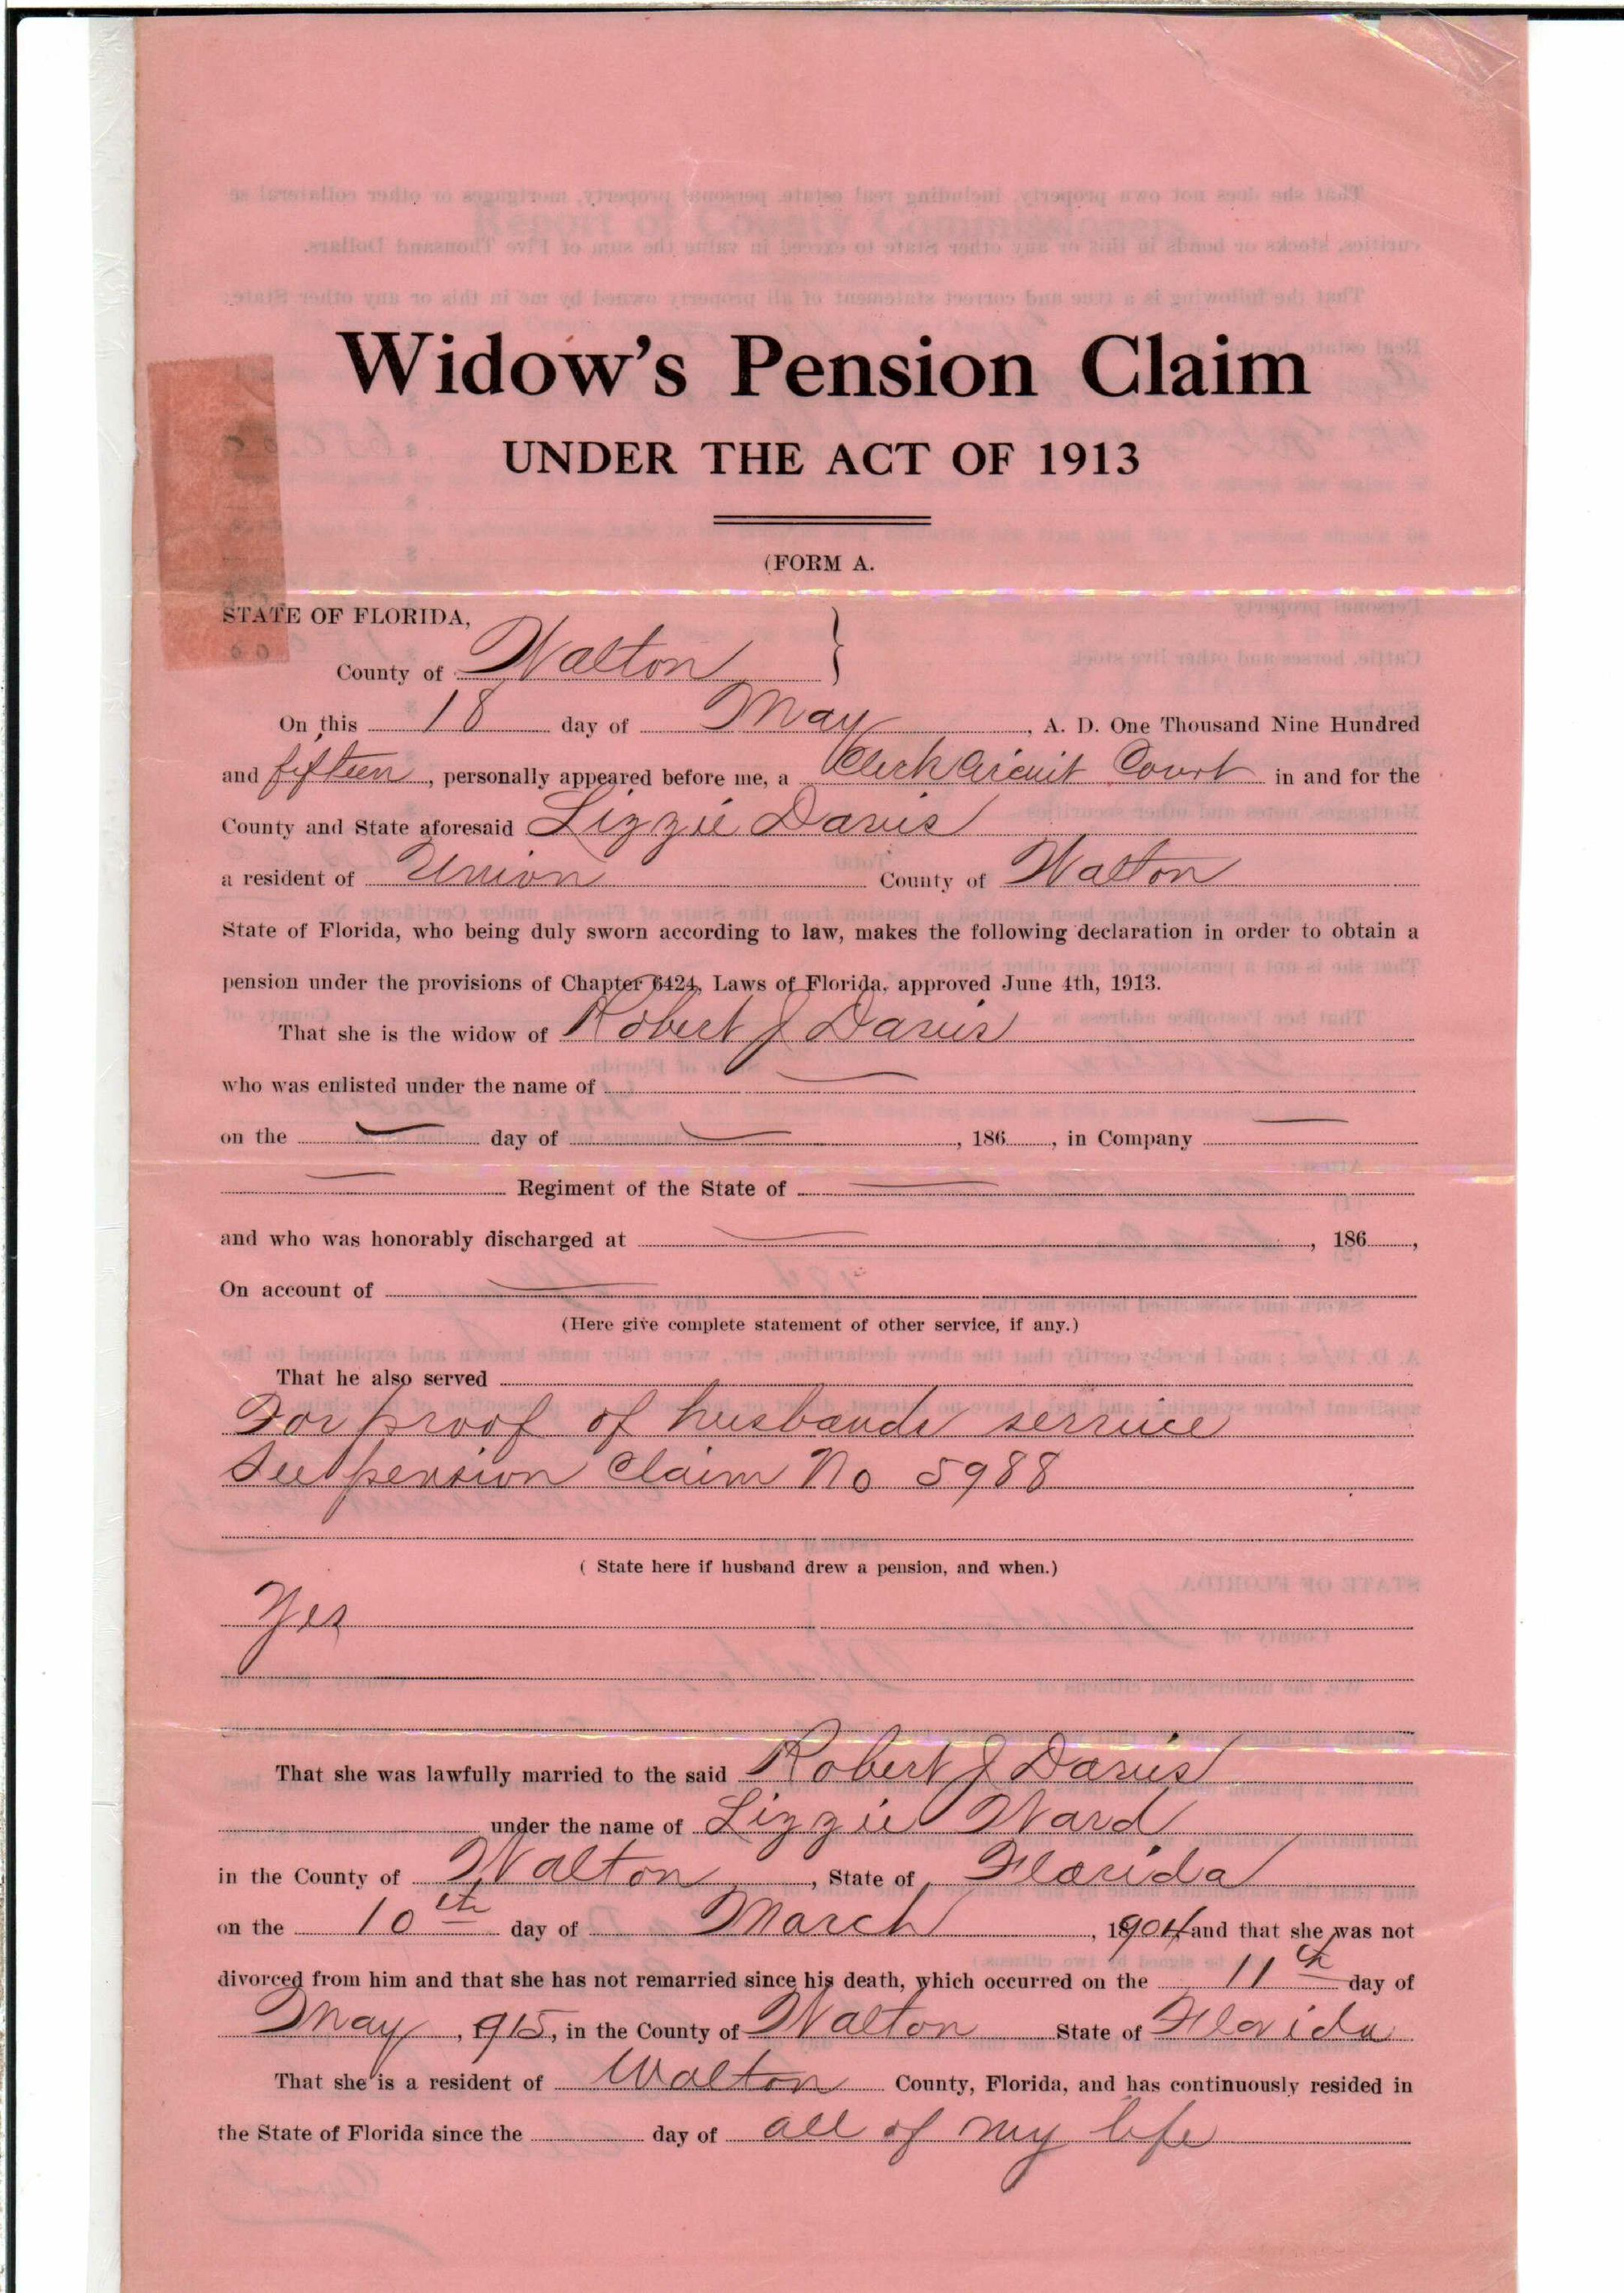 Widow's Pension Claim
UNDER THE ACT OF 1913
(FORM A.
STATE OF FLORIDA,
County of Walton }
On this 18 day of May, A. D. One Thousand Nine Hundred
and fifteen, personally appeared before me, a Clerk Circuit Court in and for the
County and State aforesaid Lizzie Davis
a resident of Union County of Walton
State of Florida, who being duly sworn according to law, makes the following declaration in order to obtain a
pension under the provisions of Chapter 6424, Laws of Florida, approved June 4th, 1913.
That she is the widow of Robert J Davis
who was enlisted under the name of —
on the — day of —, 186, in Company —
— Regiment of the State of —
and who was honorably discharged at —, 186,
On account of —
(Here give complete statement of other service, if any.)
That he also served
For proof of husbands service
See pension Claim No 5988
( State here if husband drew a pension, and when.)
Yes
That she was lawfully married to the said Robert J Davis
under the name of Lizzie Ward
in the County of Walton, State of Florida
on the 10th day of March, 1904 and that she was not
divorced from him and that she has not remarried since his death, which occurred on the 11th day of
May, 1915, in the County of Walton State of Florida
That she is a resident of Walton County, Florida, and has continuously resided in
the State of Florida since the day of all of my life